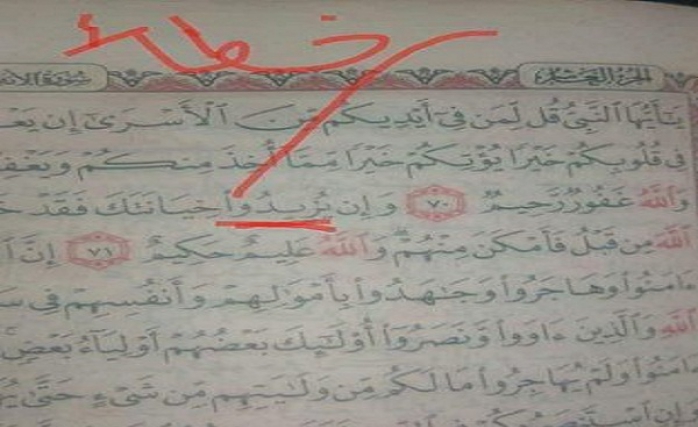 خطاء
الجزء العاشر
سورة الأنف
يَٰٓأَيُّهَا ٱلنَّبِيُّ قُل لِّمَن فِيٓ أَيْدِيكُم مِّنَ ٱلْأَسْرَىٰٓ إِن يَعْـ
فِي قُلُوبِكُمْ خَيْرًا يُؤْتِكُمْ خَيْرًا مِّمَّآ أُخِذَ مِنكُمْ وَيَغْفِـ
وَٱللَّهُ غَفُورٌ رَّحِيمٌ ٧٠ وَإِن تُرِيدُوا۟ خِيَانَتَكَ فَقَدْ خَـ
ٱللَّهَ مِن قَبْلُ فَأَمْكَنَ مِنْهُمْ وَٱللَّهُ عَلِيمٌ حَكِيمٌ ٧١ إِنَّ ٱ
ءَامَنُوا۟ وَهَاجَرُوا۟ وَجَٰهَدُوا۟ بِأَمْوَٰلِهِمْ وَأَنفُسِهِمْ فِي سَـ
ٱللَّهِ وَٱلَّذِينَ ءَاوَوا۟ وَّنَصَرُوٓا۟ أُو۟لَٰٓئِكَ بَعْضُهُمْ أَوْلِيَآءُ بَعْضٍ
ءَامَنُوا۟ وَلَمْ يُهَاجِرُوا۟ مَا لَكُم مِّن وَلَٰيَتِهِم مِّن شَيْءٍ حَتَّىٰ يُهَـ